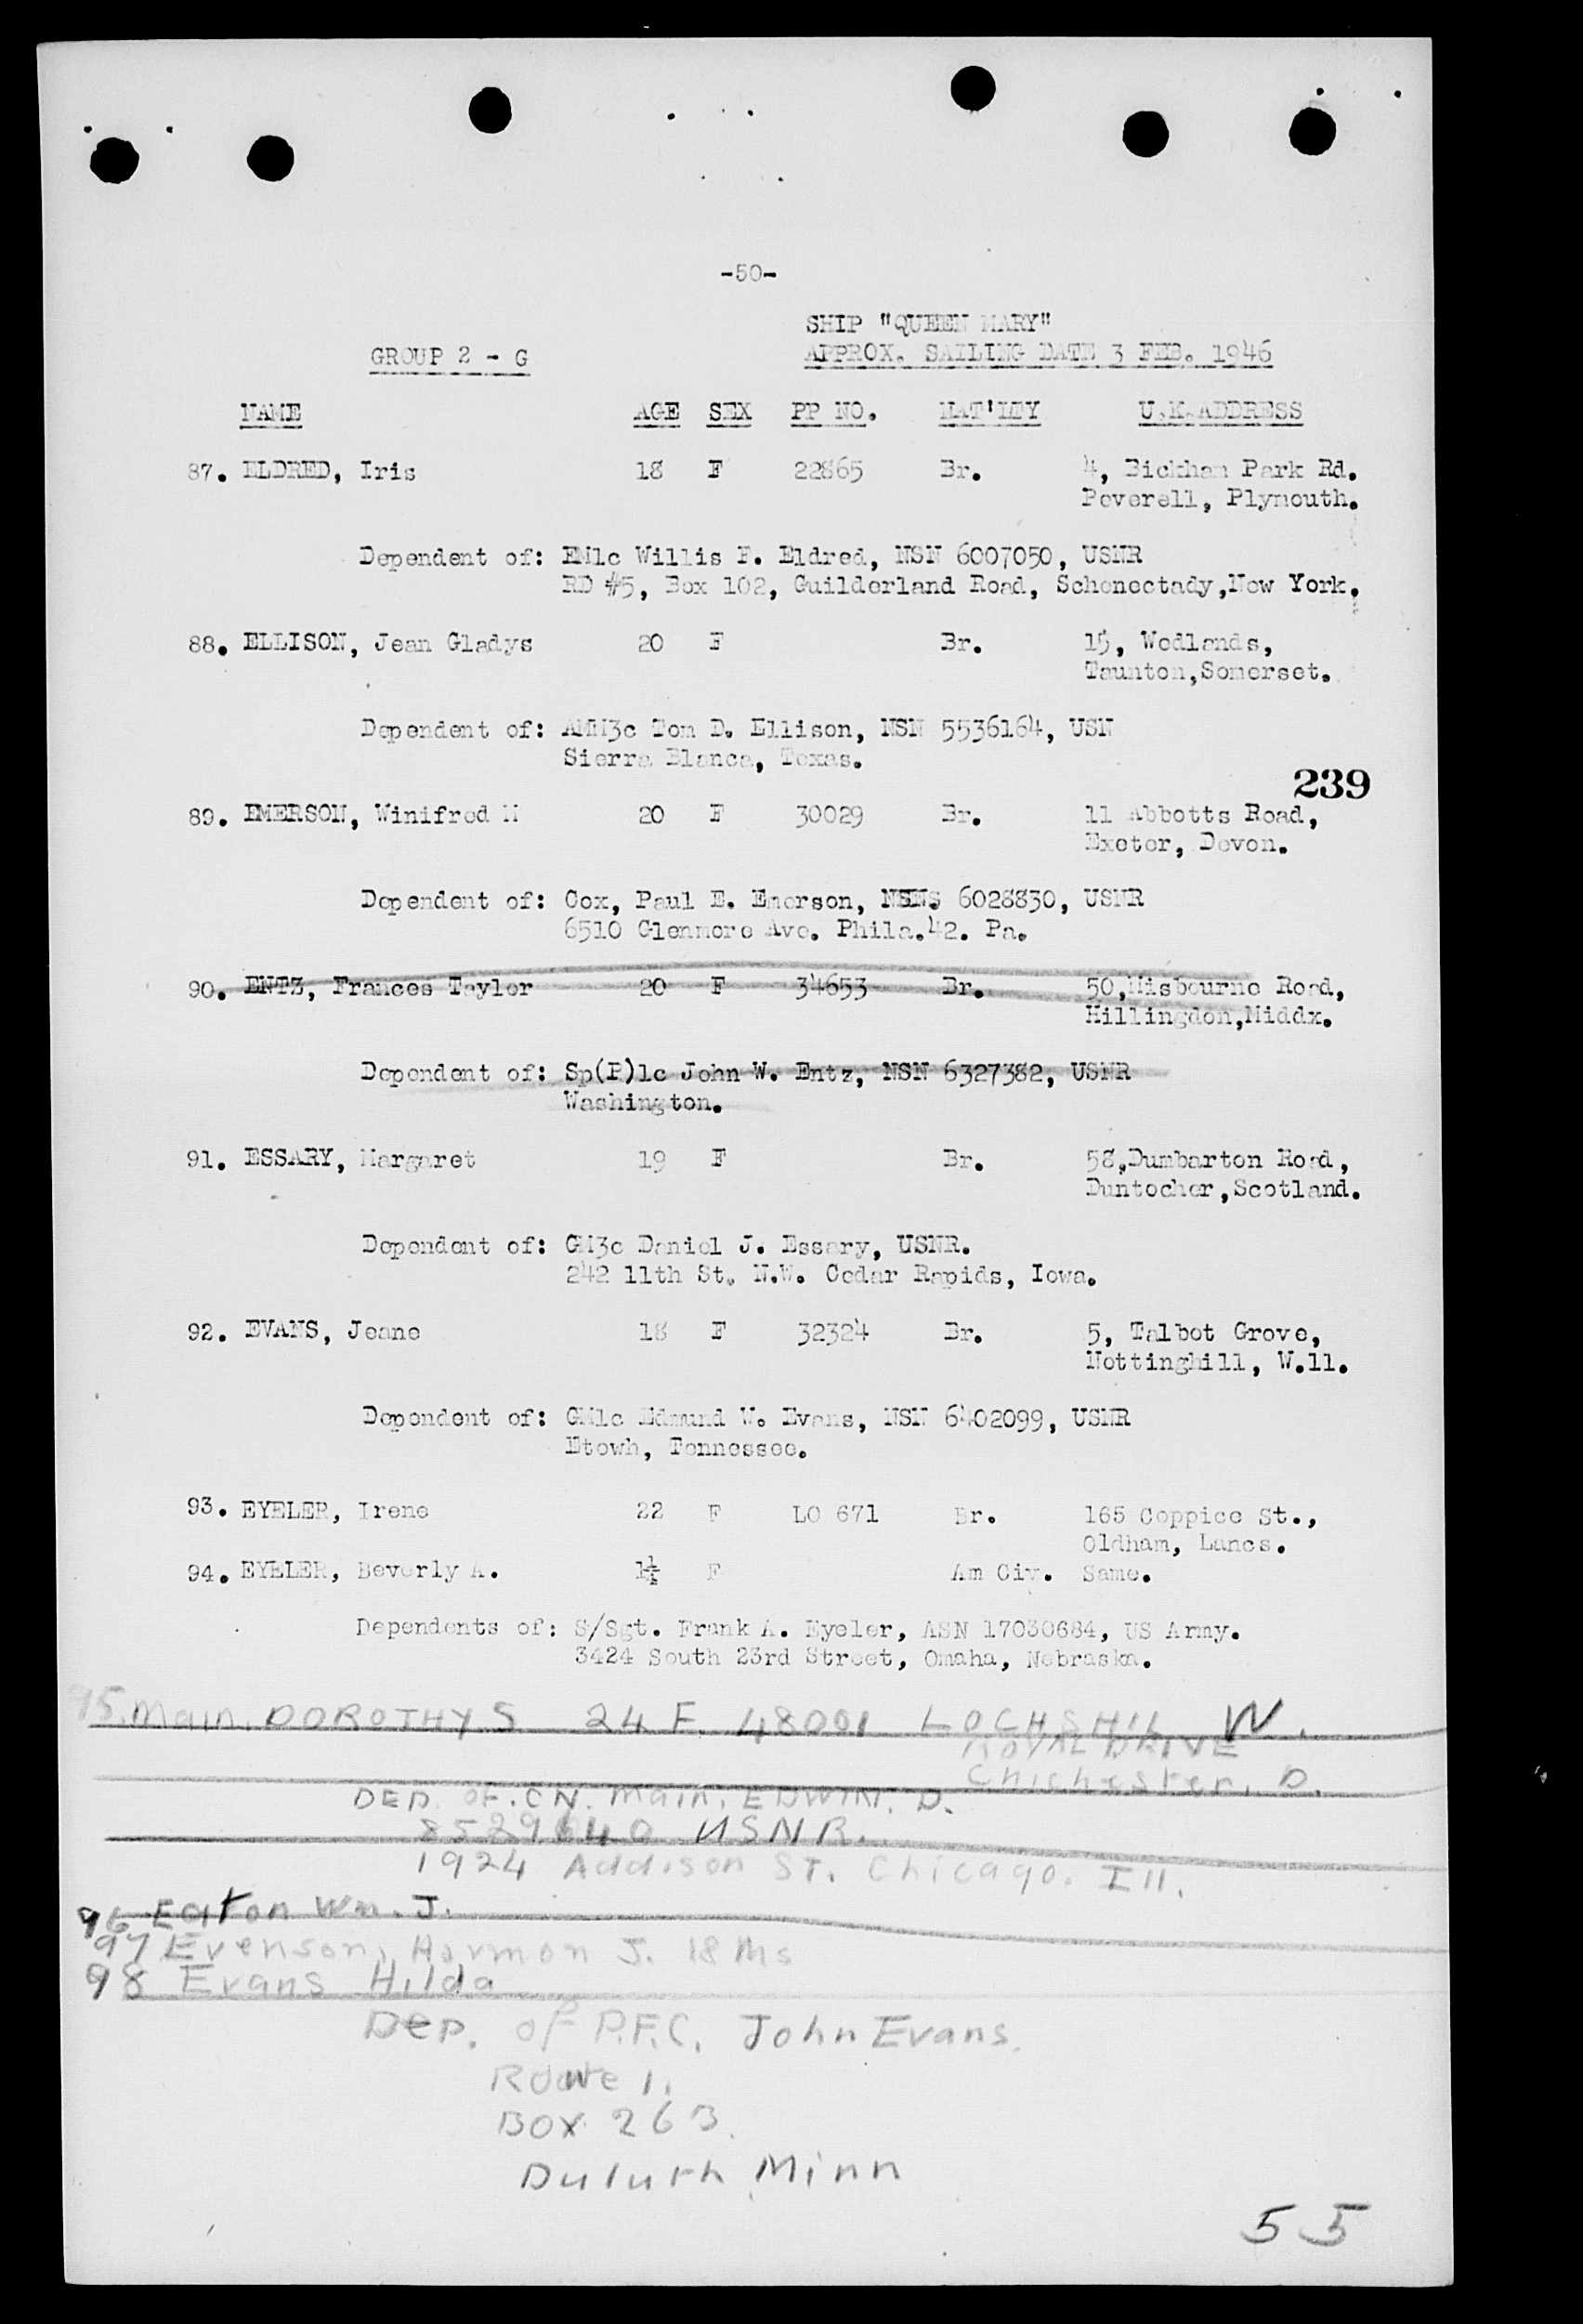 -50-
SHIP "QUEEN MARY"
GROUP 2 - G
APPROX. SAILING DATE 3 FEB. 1946
NAME AGE SEX PP NO. NAT'LTY U.K.ADDRESS
87. ELDRED, Iris 18 F 22865 Br. 4, Bickham Park Rd.
Peverell, Plymouth.
Dependent of: EM1c Willis F. Eldred, NSN 6007050, USNR
RD #5, Box 102, Guilderland Road, Schenectady,New York.
88. ELLISON, Jean Gladys 20 F Br. 15, Wedlands,
Taunton,Somerset.
Dependent of: AMM3c Tom D. Ellison, NSN 5536164, USN
Sierra Blanca, Texas.
239
89. EMERSON, Winifred M 20 F 30029 Br. 11 Abbotts Road,
Exeter, Devon.
Dependent of: Cox, Paul E. Emerson, NSN 6028830, USNR
6510 Glenmore Ave. Phila.42. Pa.
90. ENTZ, Frances Taylor 20 F 34653 Br. 50,Misbourne Road,
Hillingdon,Middx.
Dependent of: Sp(P)1c John W. Entz, NSN 6327382, USNR
Washington.
91. ESSARY, Margaret 19 F Br. 58,Dumbarton Road,
Duntocher,Scotland.
Dependent of: GM3c Daniel J. Essary, USNR.
242 11th St. N.W. Cedar Rapids, Iowa.
92. EVANS, Jeane 18 F 32324 Br. 5, Talbot Grove,
Nottinghill, W.11.
Dependent of: GM1c Edmund W. Evans, NSN 6402099, USNR
Etowh, Tennessee.
93. EYELER, Irene 22 F LO 671 Br. 165 Coppice St.,
Oldham, Lancs.
94. EYELER, Beverly A. 1½ F Am Cit. Same.
Dependents of: S/Sgt. Frank A. Eyeler, ASN 17030684, US Army.
3424 South 23rd Street, Omaha, Nebraska.
95. Main, DOROTHY S 24 F. 48001 W.
ROYAL DRIVE
Chichester. D.
DEP. OF. CN. Main, EDWIN. D.
USNR.
1924 Addison ST. Chicago. Ill.
96 Eaton Wm. J.
97 Evenson, Harmon J. 18 Ms
98 Evans Hilda
Dep. of P.F.C. John Evans.
Route 1.
BOX 263.
Duluth Minn
55